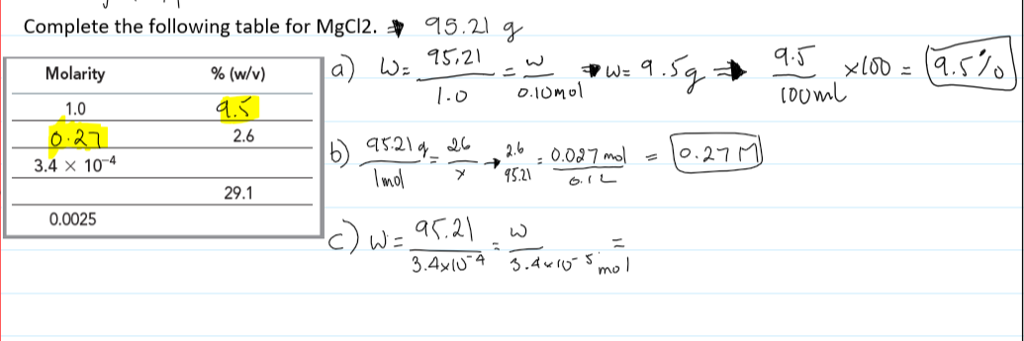 Complete the following table for MgCl2. → 95.21 g
Molarity % (w/v)
1.0 9.5
0.27 2.6
3.4 × 10⁻⁴
29.1
0.0025
a) W = 95.21 / 1.0 = w / 0.10mol → w = 9.5g → 9.5 / 100mL ×100 = 9.5%
b) 95.21 g / 1mol = 26 / x → 2.6 / 95.21 = 0.027 mol / 0.1 L = 0.27 M
c) W = 95.21 / 3.4×10⁻⁴ = w / 3.4×10⁻⁵ mol =